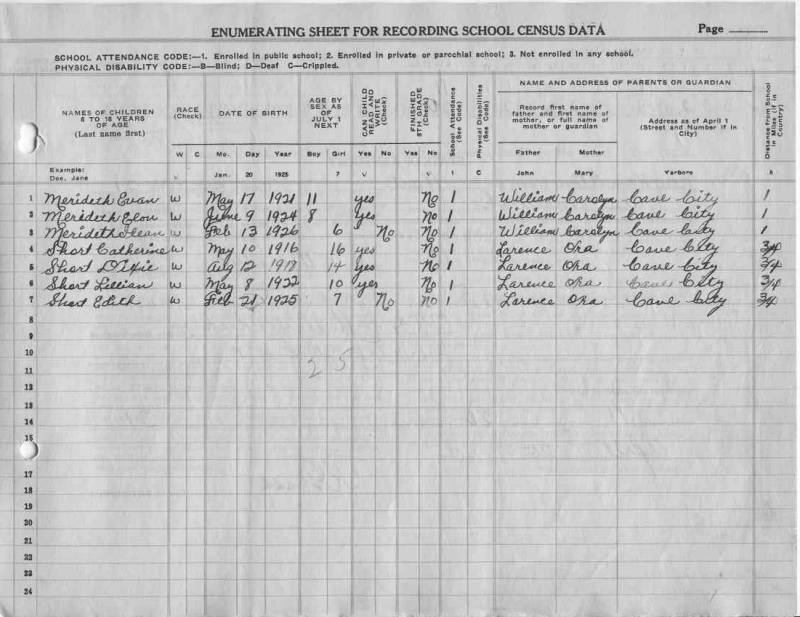 ENUMERATING SHEET FOR RECORDING SCHOOL CENSUS DATA Page
SCHOOL ATTENDANCE CODE:—1. Enrolled in public school; 2. Enrolled in private or parochial school; 3. Not enrolled in any school.
PHYSICAL DISABILITY CODE:—B—Blind; D—Deaf C—Crippled.
NAMES OF CHILDREN 6 TO 18 YEARS OF AGE (Last name first) RACE (Check) DATE OF BIRTH AGE BY SEX AS OF JULY 1 NEXT CAN CHILD READ AND WRITE (Check) FINISHED 8TH GRADE (Check) School Attendance (See Code) Physical Disabilities (See Code) NAME AND ADDRESS OF PARENTS OR GUARDIAN Distance from School in Miles (if in Country)
Record first name of father and first name of mother, or full name of mother or guardian Address as of April 1 (Street and Number if in City)
W C Mo. Day Year Boy Girl Yes No Yes No Father Mother
Example: Doe, Jane v Jan. 20 1925 7 v v 1 C John Mary Yarboro 5
1 Merideth Evan W May 17 1921 11 yes No 1 William Carolyn Cave City 1
2 Merideth Elou W June 9 1924 8 Yes No 1 William Carolyn Cave City 1
3 Merideth Ilean W Feb 13 1926 6 No No 1 William Carolyn Cave City 1
4 Short Catherine W May 10 1916 16 yes No 1 Larence Ora Cave City 3/4
5 Short Dixie W Aug 12 1918 14 yes No 1 Larence Ora Cave City 3/4
6 Short Lillian W May 8 1922 10 yes No 1 Larence Ora Cave City 3/4
7 Short Edith W Feb 21 1925 7 No no 1 Larence Ora Cave City 3/4
8
9
10
11 25
12
13
14
15
17
18
19
20
21
22
23
24